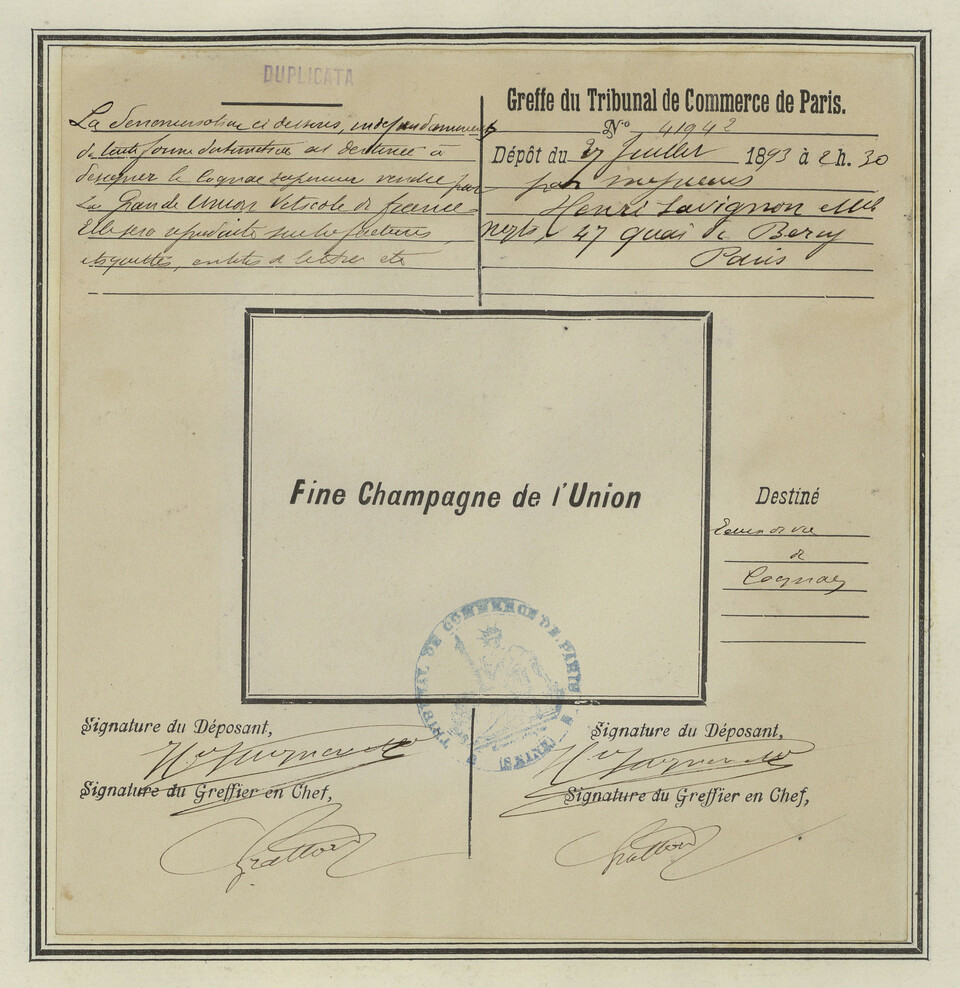 DUPLICATA
La dénomination ci dessus, indépendamment
de toute forme distinctive est destinée à
désigner le Cognac supérieur vendu par
La Grande Union Viticole de France
Elle sera reproduite sur les factures,
étiquettes, entêtes de lettres etc
Greffe du Tribunal de Commerce de Paris.
N° 41942
Dépôt du 27 Juillet 1893 à 2 h. 30
par messieurs
Henri Savignon
Negts, 47 quai de Bercy
Paris
Fine Champagne de l'Union
Destiné
Eaux de vie
de
Cognac
TRIBUNAL DE COMMERCE DE PARIS
(SEINE)
Signature du Déposant,
Signature du Greffier en Chef,
Signature du Déposant,
Signature du Greffier en Chef,